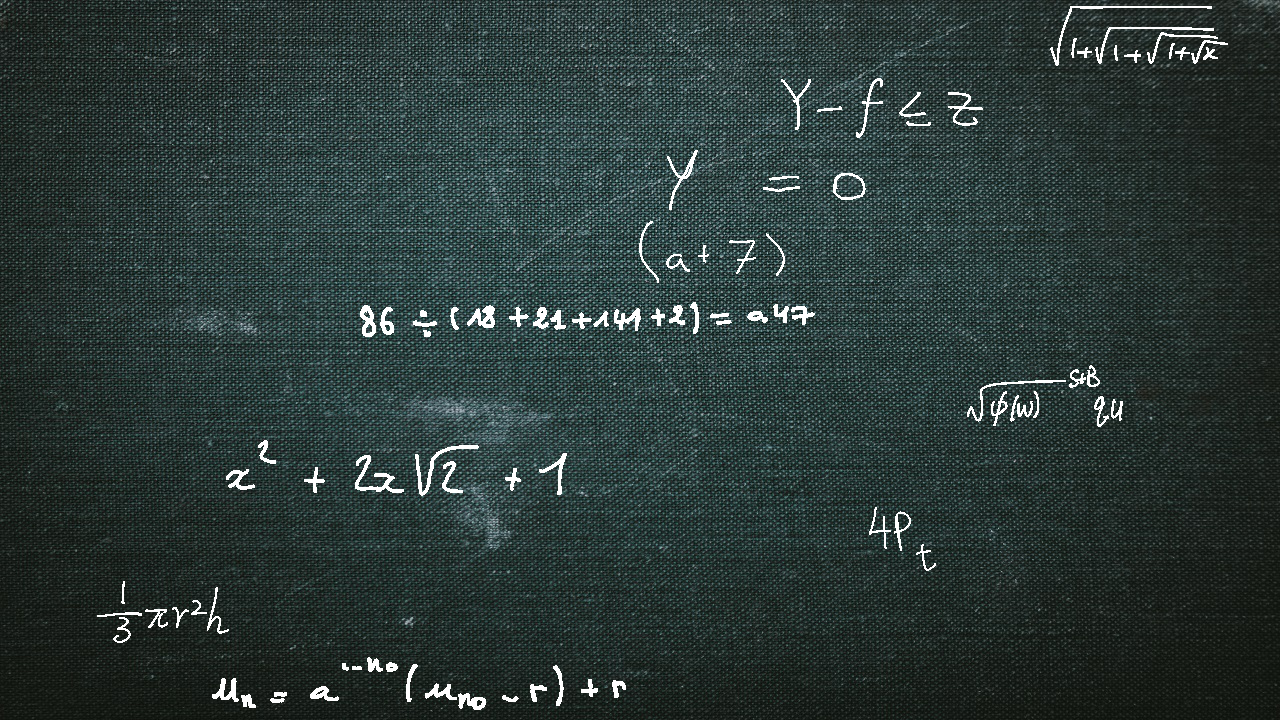 √(1+√(1+√(1+√x)))
Y - f ≤ z
Y = 0
(a + 7)
86 ÷ (18 + 21 + 141 + 2) = a47
√φ(w) S+B qu
x² + 2x√2 + 1
4Pt
1/3 πr²h
un = a^(…-n0) (un0 - r) + r